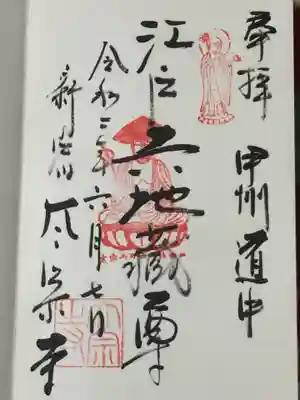 奉拝 甲州道中
江戸六地蔵尊
令和二年六月七日
新宿 太宗寺